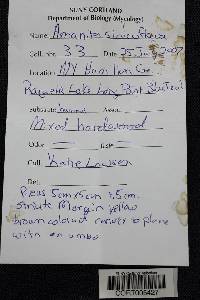 SUNY CORTLAND
Department of Biology (Mycology)
Name Amanita
Coll. No. 33 Date 25 July 2007
Location NY Hamilton Co.
Raquette Lake Long Point
Substrate
Mixed hardwood
Odor
Coll. Katie
Det.
Pileus 5cm x 5cm 1.5cm.
striate Margin yellow
brown colored convex to plane
with an umbo
CORT006427